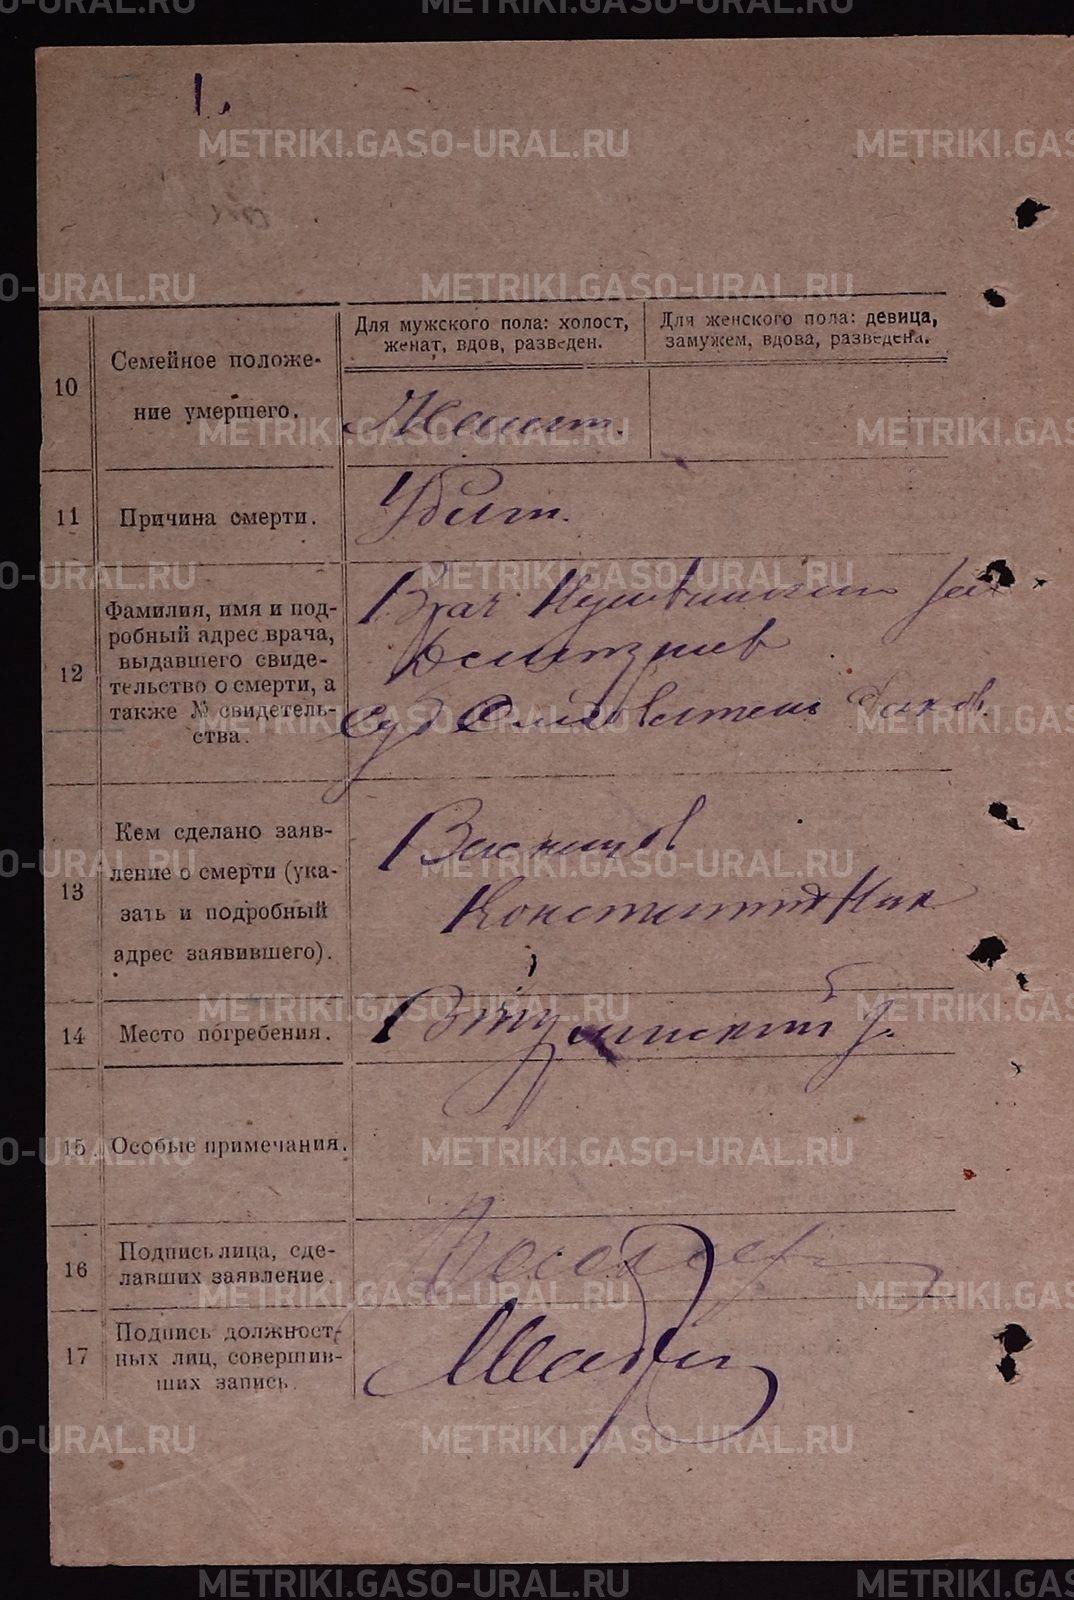 1.
Для мужского пола: холост,
женат, вдов, разведен.
Для женского пола: девица,
замужем, вдова, разведена.
10
Семейное положе-
ние умершего.
Женат.
11
Причина смерти.
Убит.
12
Фамилия, имя и под-
робный адрес врача,
выдавшего свиде-
тельство о смерти, а
также № свидетель-
ства.
Врач Кушвинский
13
Кем сделано заяв-
ление о смерти (ука-
зать и подробный
адрес заявившего).
Васнецов
Константин Ник
14
Место погребения.
15
Особые примечания.
16
Подпись лица, сде-
лавших заявление.
17
Подпись должност-
ных лиц, совершив-
ших запись.
METRIKI.GASO-URAL.RU